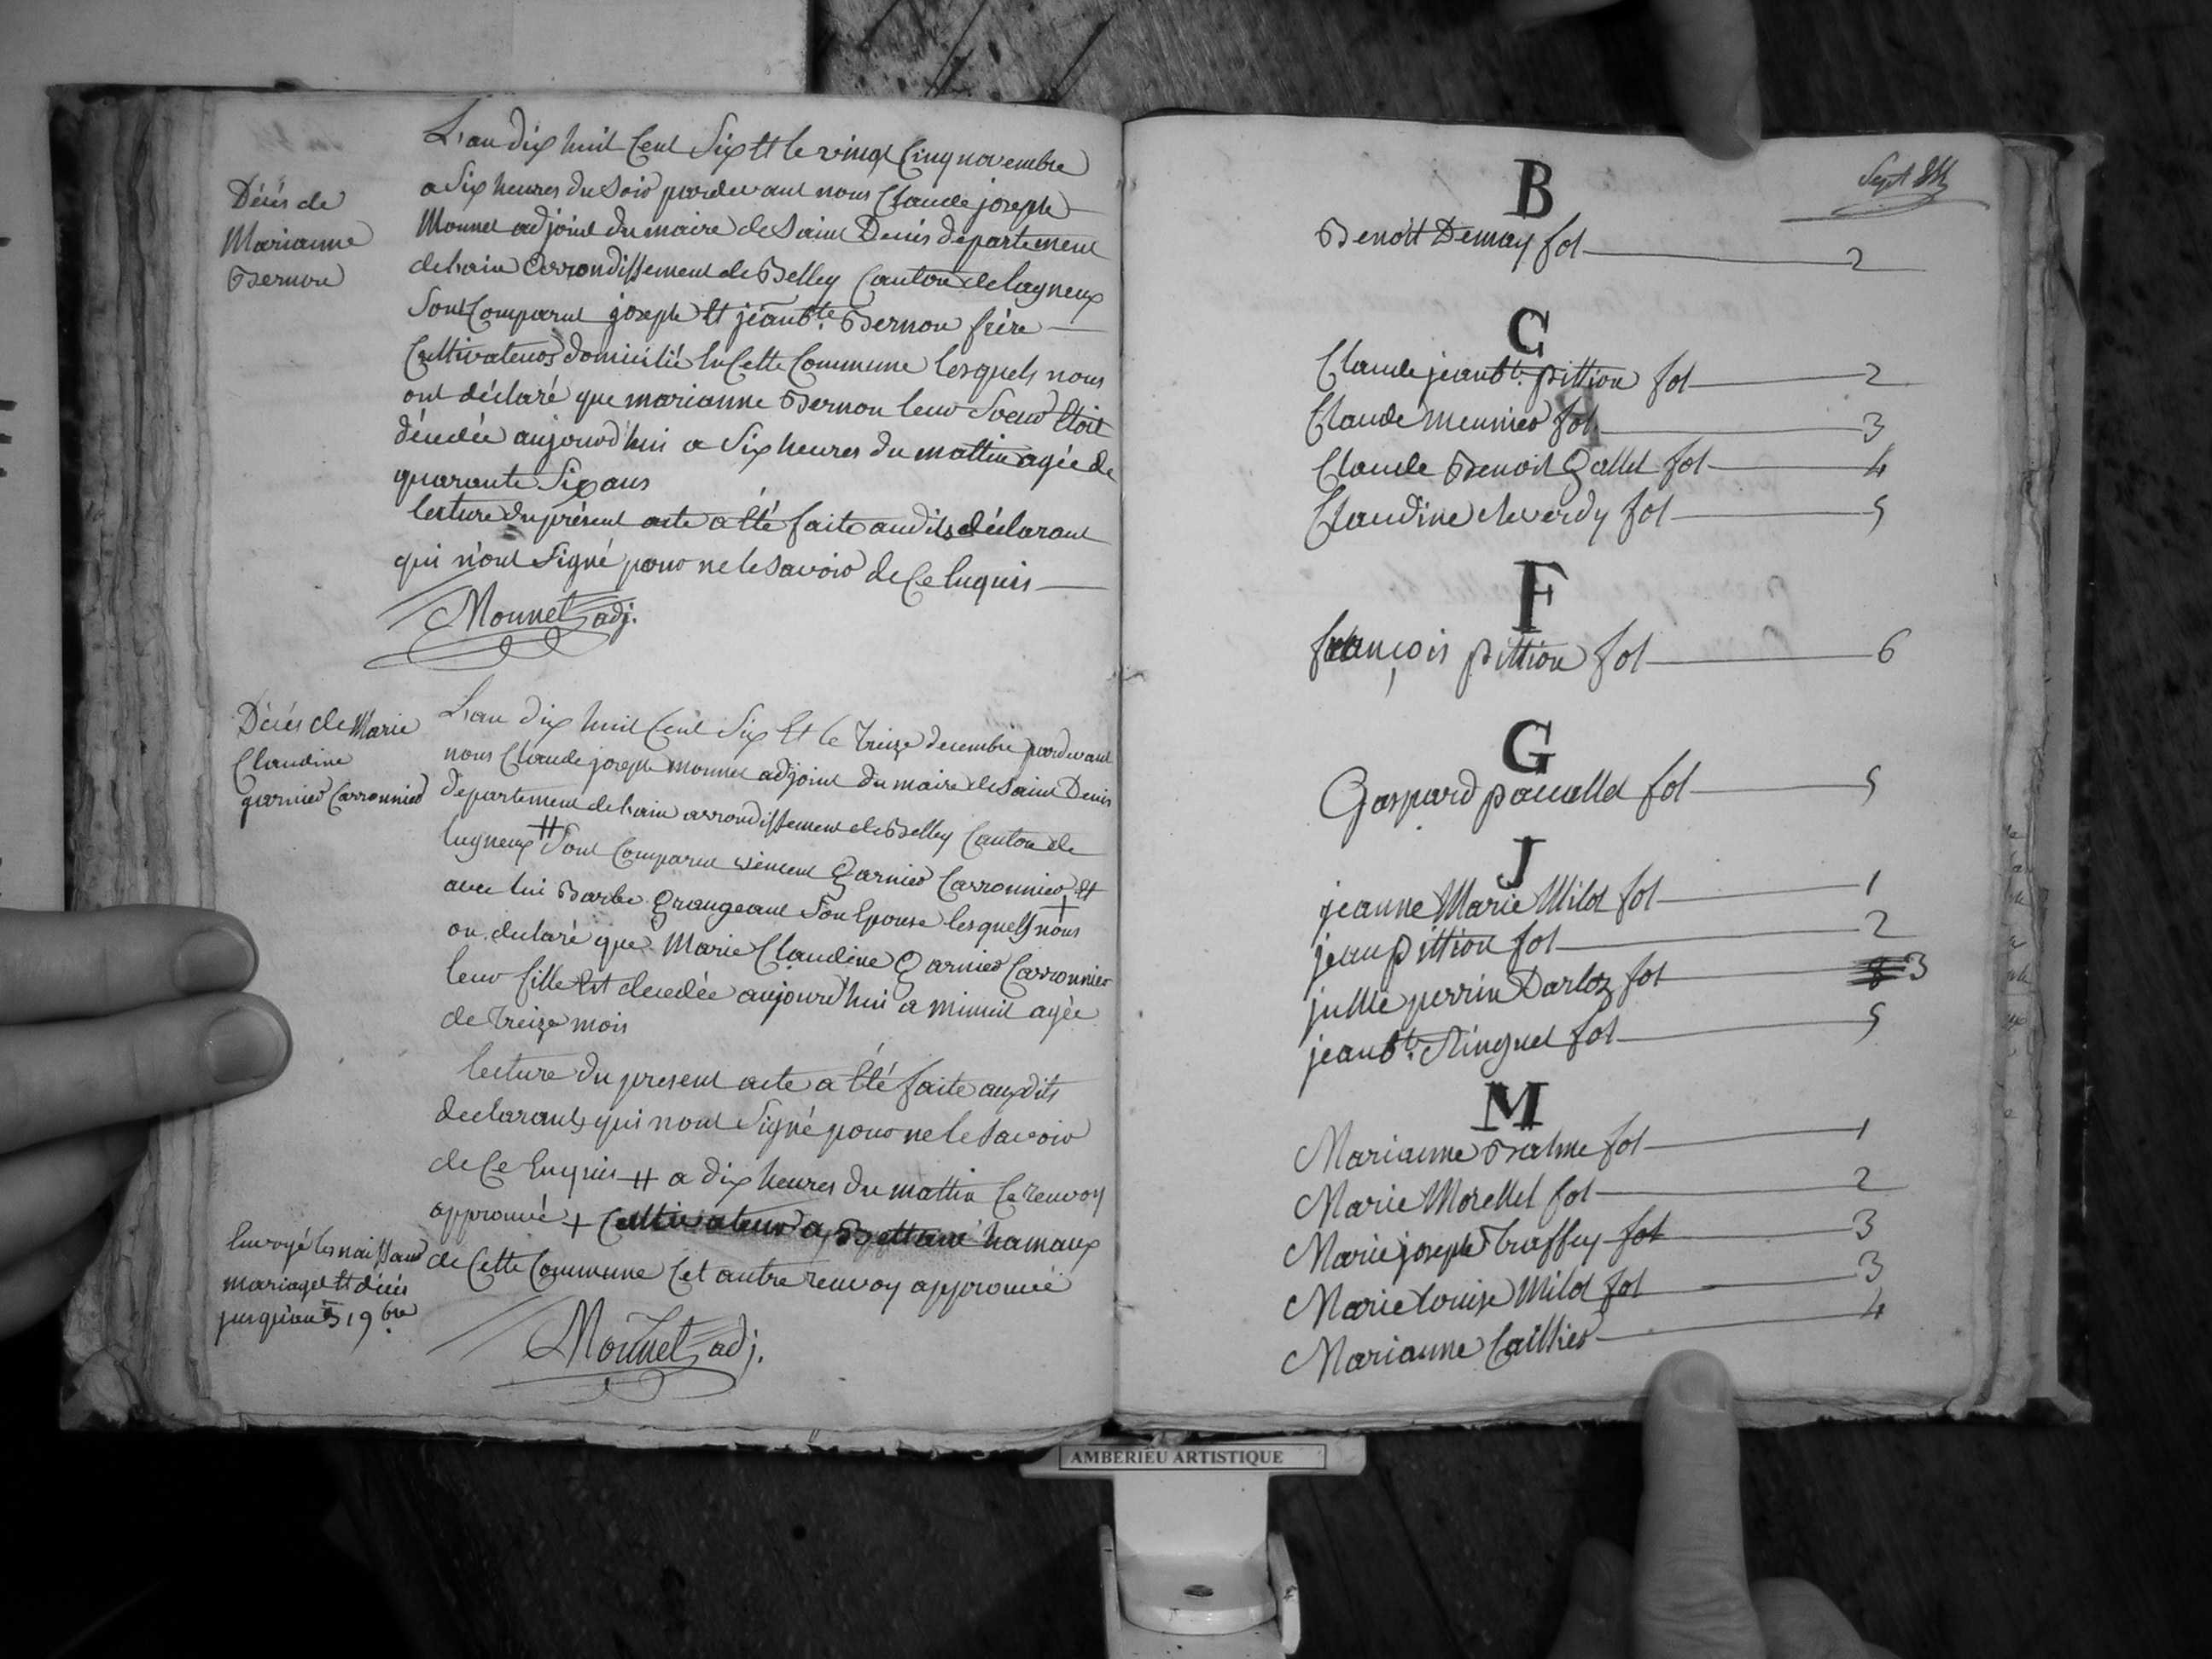 Décès de
Marianne
Bernon
L'an dix huit Cent Six Et le vingt Cinq novembre
a Six heures du Soir pardevant nous Claude joseph
Monnet adjoint du maire de Saint Denis département
de Lain arrondissement de Belley Canton de Lagneux
Sont Comparut joseph Et jean bte. Bernon frère
Cultivateurs domicilié En Cette Commune lesquels nous
ont déclaré que marianne Bernon leur Soeur Etoit
décedée aujourd'hui a Six heures du mattin agée de
quarante Six ans
lecture du présent acte a Eté faite audits déclarant
qui n'ont Signé pour ne le Savoir de Ce Enquis
Monnet adj.
Décès de Marie
Claudine
garnier Carronnier
L'an dix huit Cent Six Et le treize decembre pardevant
nous Claude joseph monnet adjoint du maire de Saint Denis
departement de Lain arrondissement de Belley Canton de
Lagneux # Sont Comparut vincent Garnier Carronnier Et
avec lui Barbe Grangeant Son Epouse + lesquels nous
on declaré que Marie Claudine Garnier Carronnier
leur fille Est decedée aujourd'hui a minuit agée
de treize mois
lecture du present acte a Eté faite auxdits
declarants qui nont Signé pour ne le Savoir
de Ce Enquis # a dix heures du mattin Ce renvoy
approuvé + Cultivateur a Bettant hamaux
de Cette Commune Cet autre renvoy approuvé
Envoyé les naissances
mariages Et décès
jusqu'au 19 bre
Monnet adj.
Sept
B
Benoit Demay fol 2
C
Claude jean bte. pittion fol 2
Claude meunier fol 3
Claude Benoit Gallet fol 4
Claudine cheverdy fol 5
F
françois pittion fol 6
G
Gaspard paccallet fol 5
J
jeanne Marie Milot fol 1
jean pittion fol 2
jullie perrin Darloz fol 3
jean bte. Ringuet fol 5
M
Marianne Balme fol 1
Marie Morellet fol 2
Marie joseph Traffey fol 3
Marie Louise Milot fol 3
Marianne Caillier 4
AMBERIEU ARTISTIQUE